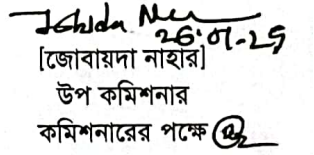 26.01.25
[জোবায়দা নাহার]
উপ কমিশনার
কমিশনারের পক্ষে